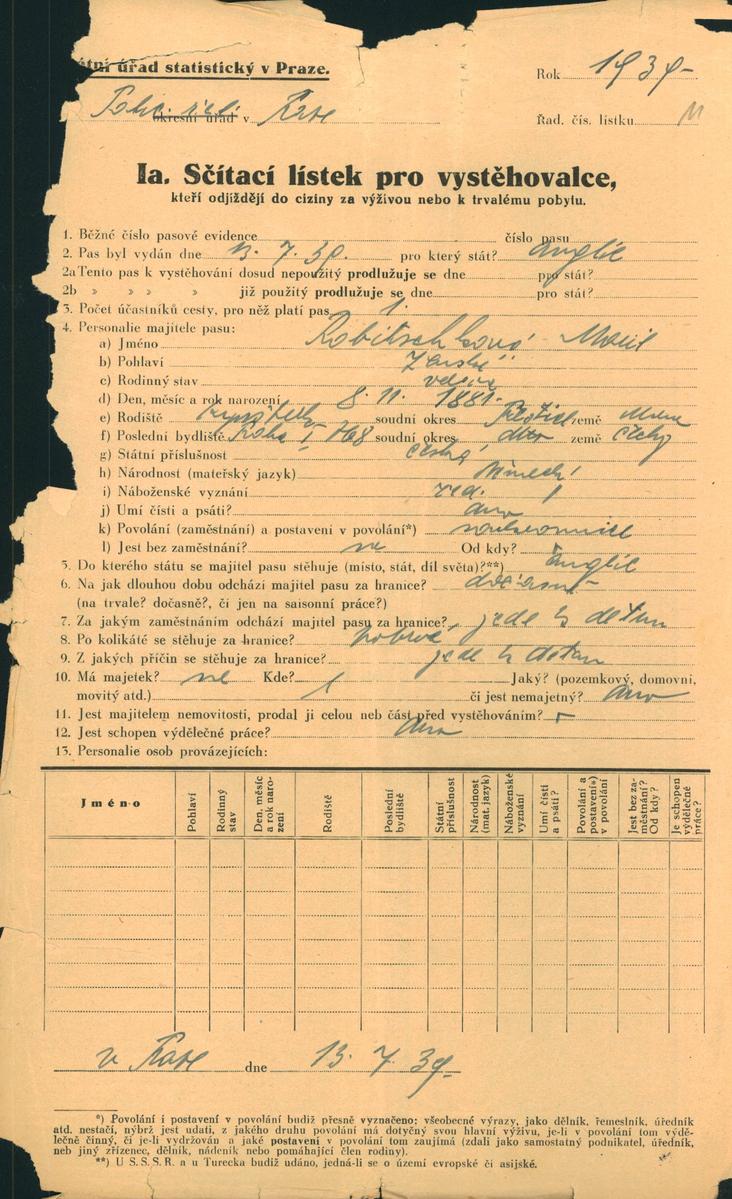 úřad statistický v Praze.
Rok 1939
okresní úřad v Praze
Řad. čís. lístku
Ia. Sčítací lístek pro vystěhovalce,
kteří odjíždějí do ciziny za výživou nebo k trvalému pobytu.
1. Běžné číslo pasové evidence číslo pasu
2. Pas byl vydán dne 13. 7. 39. pro který stát? Anglie
2a Tento pas k vystěhování dosud nepoužitý prodlužuje se dne pro stát?
2b » » » » již použitý prodlužuje se dne pro stát?
3. Počet účastníků cesty, pro něž platí pas 1.
4. Personalie majitele pasu:
a) Jméno Robitschková
b) Pohlaví ženské
c) Rodinný stav
d) Den, měsíc a rok narození 8. 11. 1881.
e) Rodiště soudní okres země
f) Poslední bydliště Praha I, 768 soudní okres dtto země Čechy
g) Státní příslušnost česká
h) Národnost (mateřský jazyk)
i) Náboženské vyznání
j) Umí čísti a psáti? ano
k) Povolání (zaměstnání) a postavení v povolání*)
l) Jest bez zaměstnání? ne Od kdy?
5. Do kterého státu se majitel pasu stěhuje (místo, stát, díl světa)?**) Anglie
6. Na jak dlouhou dobu odchází majitel pasu za hranice? dočasně
(na trvale? dočasně?, či jen na saisonní práce?)
7. Za jakým zaměstnáním odchází majitel pasu za hranice? jede k dětem
8. Po kolikáté se stěhuje za hranice? poprvé
9. Z jakých příčin se stěhuje za hranice? jede k dětem
10. Má majetek? ne Kde? Jaký? (pozemkový, domovní,
movitý atd.) či jest nemajetný? ano
11. Jest majitelem nemovitosti, prodal ji celou neb část před vystěhováním?
12. Jest schopen výdělečné práce? ano
13. Personalie osob provázejících:
Jméno
Pohlaví
Rodinný stav
Den, měsíc a rok narození
Rodiště
Poslední bydliště
Státní příslušnost
Národnost (mat. jazyk)
Náboženské vyznání
Umí čísti a psáti?
Povolání a postavení*) v povolání
Jest bez zaměstnání? Od kdy?
Je schopen výdělečné práce?
v Praze dne 13. 7. 39.
*) Povolání i postavení v povolání budiž přesně vyznačeno; všeobecné výrazy, jako dělník, řemeslník, úředník
atd. nestačí, nýbrž jest udati, z jakého druhu povolání má dotyčný svou hlavní výživu, je-li v povolání tom výdě-
lečně činný, či je-li vydržován a jaké postavení v povolání tom zaujímá (zdali jako samostatný podnikatel, úředník,
neb jiný zřízenec, dělník, nádeník nebo pomáhající člen rodiny).
**) U S. S. S. R. a u Turecka budiž udáno, jedná-li se o území evropské či asijské.